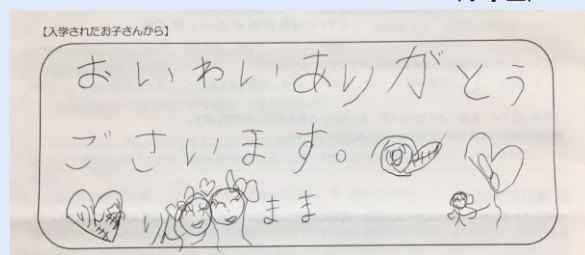 【入学されたお子さんから】
おいわいありがとう
ございます。
まま